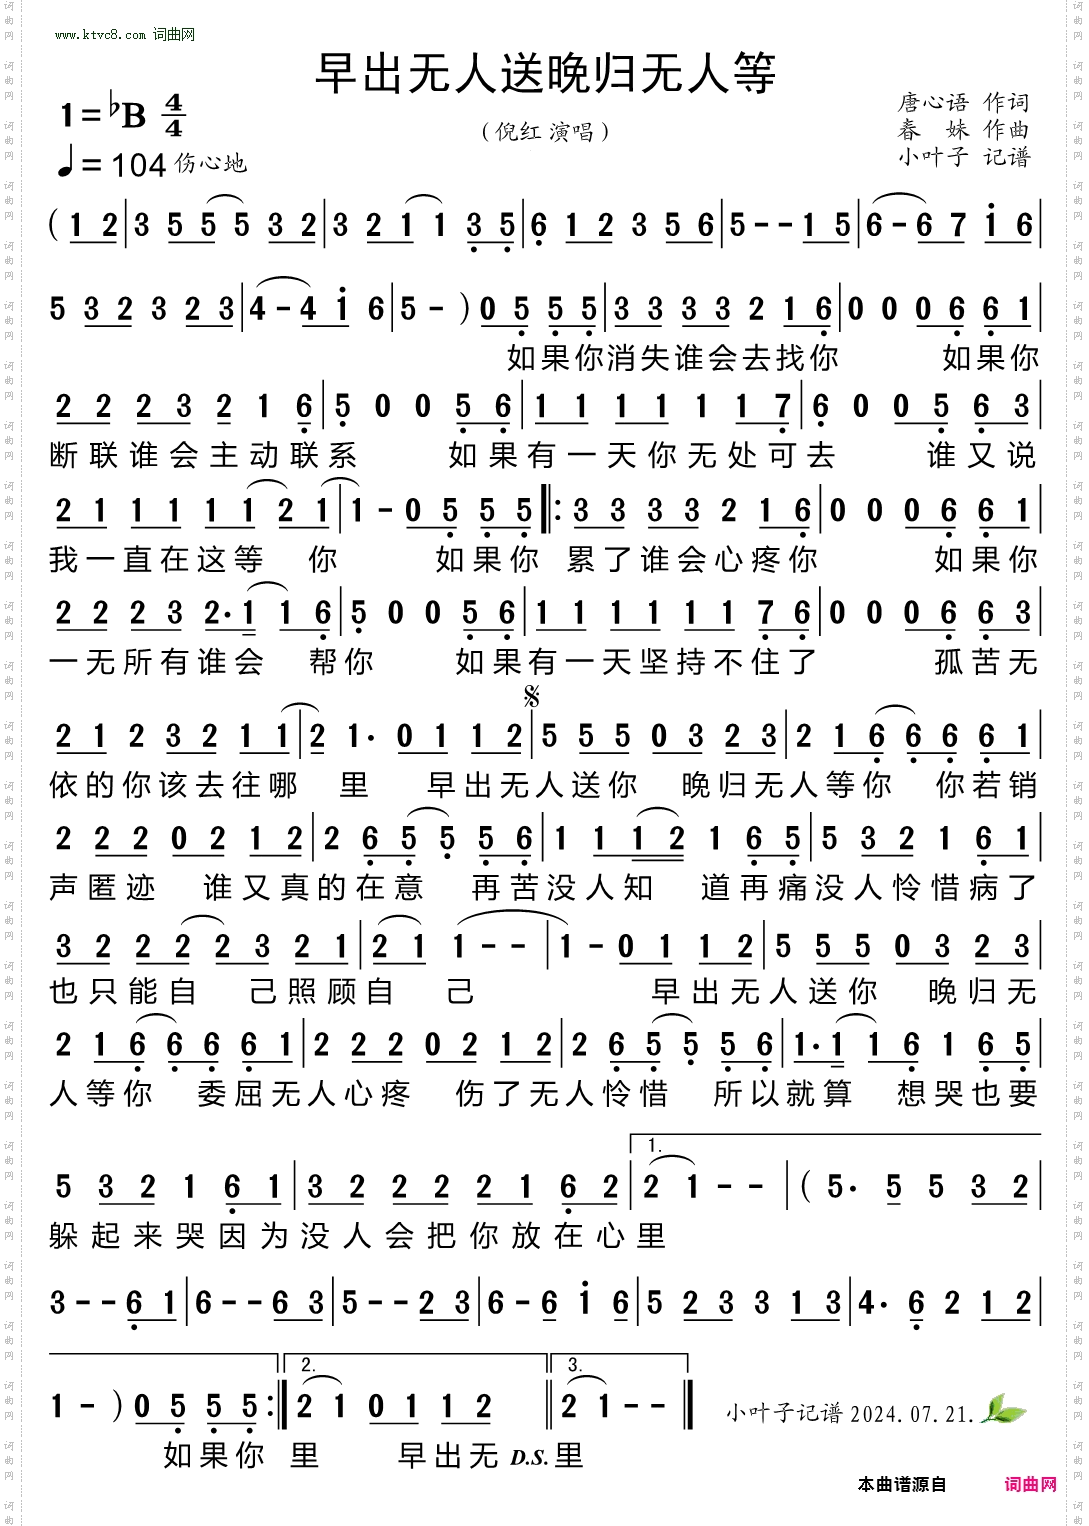 www.ktvc8.com 词曲网
早出无人送晚归无人等
1=♭B 4/4
（倪红 演唱）
唐心语 作词
春 妹 作曲
小叶子 记谱
♩=104 伤心地
( 1 2 | 3 5 5 5 3 2 | 3 2 1 1 3 5 | 6 1 2 3 5 6 | 5 - - 1 5 | 6 - 6 7 i 6 |
5 3 2 3 2 3 | 4 - 4 i 6 | 5 - ) 0 5 5 5 | 3 3 3 3 2 1 6 | 0 0 0 6 6 1 |
如果你消失谁会去找你 如果你
2 2 2 3 2 1 6 | 5 0 0 5 6 | 1 1 1 1 1 1 7 | 6 0 0 5 6 3 |
断联谁会主动联系 如果有一天你无处可去 谁又说
2 1 1 1 1 1 2 1 | 1 - 0 5 5 5 ‖: 3 3 3 3 2 1 6 | 0 0 0 6 6 1 |
我一直在这等 你 如果你 累了谁会心疼你 如果你
2 2 2 3 2· 1 1 6 | 5 0 0 5 6 | 1 1 1 1 1 7 6 | 0 0 0 6 6 3 |
一无所有谁会 帮你 如果有一天坚持不住了 孤苦无
𝄋
2 1 2 3 2 1 1 | 2 1· 0 1 1 2 | 5 5 5 0 3 2 3 | 2 1 6 6 6 6 1 |
依的你该去往哪 里 早出无人送你 晚归无人等你 你若销
2 2 2 0 2 1 2 | 2 6 5 5 5 6 | 1 1 1 2 1 6 5 | 5 3 2 1 6 1 |
声匿迹 谁又真的在意 再苦没人知 道再痛没人怜惜病了
3 2 2 2 2 3 2 1 | 2 1 1 - - | 1 - 0 1 1 2 | 5 5 5 0 3 2 3 |
也只能自 己照顾自 己 早出无人送你 晚归无
2 1 6 6 6 6 1 | 2 2 2 0 2 1 2 | 2 6 5 5 5 6 | 1· 1 1 6 1 6 5 |
人等你 委屈无人心疼 伤了无人怜惜 所以就算 想哭也要
1.
5 3 2 1 6 1 | 3 2 2 2 2 1 6 2 | 2 1 - - | ( 5· 5 5 3 2
躲起来哭因为没人会把你放在心里
3 - - 6 1 | 6 - - 6 3 | 5 - - 2 3 | 6 - 6 i 6 | 5 2 3 3 1 3 | 4· 6 2 1 2 |
2. 3.
1 - ) 0 5 5 5 :‖ 2 1 0 1 1 2 ‖ 2 1 - ‖
小叶子记谱 2024.07.21.
如果你 里 早出无 D.S. 里
本曲谱源自 词曲网